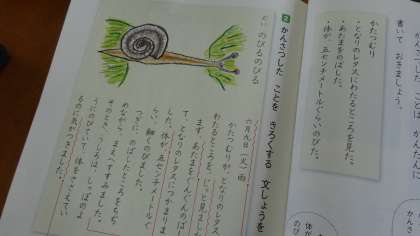 書いて おきましょう。
かたつむり
・となりのレタスにわたるところを見た。
・あたまをのばした。
・体が、五センチメートルぐらいのびた。
2 かんさつした ことを きろくする 文しょうを
のびるのびる
六月九日（火）雨
かたつむりが、となりのレタスに
わたるところを、じっと見ました。
まず、あたまをぐんぐんのば
して、となりのレタスにつかまりま
した。体が、五センチメートルぐ
らい、細くのびました。
つぎに、のばしたところをちぢ
めながら、まえへすすみました。
そのとき、うしろは、しっぽのよ
うにのびていて、体をささえてい
るのに気がつきました。